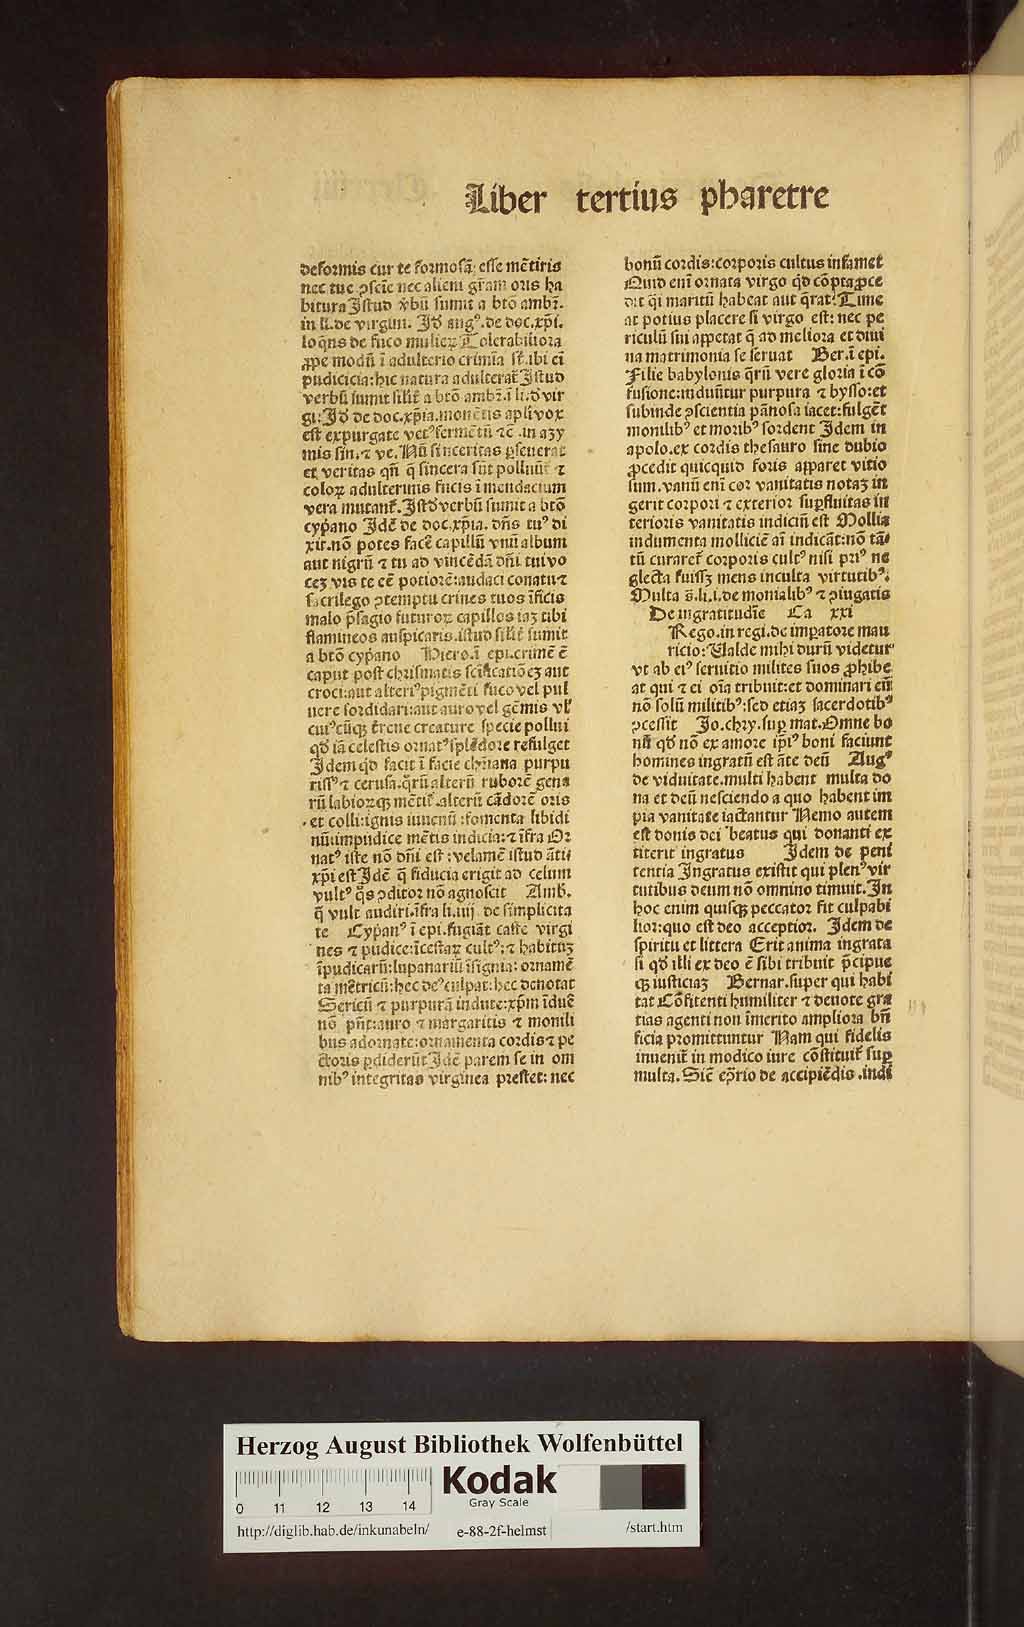 Liber tertius pharetre
deformis cur te formosã esse mẽtiris
nec tue ꝯscie nec alieni gr̃am oris ha
bitura Istud v̾bũ sumit a btõ ambr̃.
in li. de virgini. Id̃ augꝰ. de doc. xp̃i.
loq̃ns de fuco mulieꝝ Tolerabiliora
ꝓpe modũ ĩ adulterio crimĩa sr̃. ibi eĩ
pudicicia: hic natura adulterat̃ Istud
verbũ sumit silr̃ a btõ ambr̃. ĩ li. d̃ vir
gi: Id̃ de doc. xp̃ia. monẽtis apl̃i vox
est expurgate vetꝰ fermẽtũ ⁊c̃. in azy
mis sin. ⁊ ve. Nũ sinceritas p̲seuerat
et veritas qñ q̃ sincera sũt polluũt̃ ⁊
coloꝝ adulterinis fucis ĩ mendacium
vera mutant̃. Istd̃ verbũ sumit a btõ
cyp̃ano Idẽ de doc. xp̃ia. dñs tuꝰ di
xit. nõ potes facẽ capillũ vnũ album
aut nigrũ ⁊ tu ad vincẽdã dñi tui vo
cẽ vis te eẽ potiorẽ: audaci conatu ⁊
sacrilego ꝯtemptu crines tuos ĩficis
malo p̃sagio futuroꝝ capillos iaꝫ tibi
flamineos auspicaris. istud silr̃ sumit
a btõ cyp̃ano Hiero. ĩ epi. crimẽ ẽ
caput post chrismatis scĩficatiõeꝫ aut
croci: aut alteriꝰ pigmẽti fuco vel pul
uere sordidari: aut auro vel gẽmis vl̃
cuiꝰcũqꝫ t̃rene creature specie pollui
qd̃ iã celestis ornatꝰ splẽdore refulget
Idem qd̃ facit ĩ facie chr̃iana purpu
rissꝰ ⁊ cerusa. q̃rũ alterũ ruborẽ gena
rũ labioꝝqꝫ mẽtit̃. alterũ cãdorẽ oris
et colli: ignis iuuenũ: fomenta libidi
nũ: impudice mẽtis indicia: ⁊ ĩfra Or
natꝰ iste nõ dñi est: velamẽ istud ãti
xp̃i est Idẽ q̃ fiducia erigit ad celum
vultꝰ q̃s ꝯditor nõ agnoscit Amb̃.
q̃ vult audiri. ĩfra li. iiij de simplicita
te Cyp̃anꝰ ĩ epi. fugiãt caste virgi
nes ⁊ pudice: ĩcestaꝝ cultꝰ: ⁊ habituꝫ
ĩpudicarũ: lupanariũ ĩsignia: ornamẽ
ta meretriciũ: hec deꝰ culpat: hec denotat
Sericũ ⁊ purpurã indute: xp̃m ĩduẽ
nõ pñt: auro ⁊ margaritis ⁊ monili
bus adornate: ornamenta cordis ⁊ pe
ctoris p̲diderũt Idẽ parem se in om
nibꝰ integritas virginea prestet: nec
bonũ cordis: corporis cultus infamet
Quid enĩ ornata virgo qd̃ cõpta ꝓce
dit q̃i maritũ habeat aut q̃rat: Time
at potius placere si virgo est: nec pe
riculũ sui appetat q̃ ad meliora et diui
na matrimonia se seruat Ber. ĩ epi.
Filie babylonis q̃rũ vere gloria ĩ cõ
fusione: induũtur purpura ⁊ bysso: et
subinde ꝯscientia pãnosa iacet: fulgẽt
monilibꝰ et moribꝰ sordent Idem in
apolo. ex cordis thesauro sine dubio
ꝓcedit quicquid foris apparet vitio
sum. vanũ enĩ cor vanitatis notaꝫ in
gerit corpori ⁊ exterior sup̲fluitas in
terioris vanitatis indiciũ est Mollia
indumenta molliciẽ aĩ indicãt: nõ tã
tũ curaret̃ corporis cultꝰ nisi priꝰ ne
glecta fuissꝫ mens inculta virtutibꝰ:
Multa s̃. li. i. de monialibꝰ ⁊ ꝯiugatis
De ingratitudĩe Ca xxi
Rego. in regi. de imp̲atore mau
ricio: Ualde mihi durũ videtur
vt ab eiꝰ seruitio milites suos ꝓhibe
at qui ⁊ ei oĩa tribuit: et dominari eũ
nõ solũ militibꝰ: sed etiaꝫ sacerdotibꝰ
ꝯcessit Jo. chry. sup̲ mat. Omne bo
nũ qd̃ nõ ex amore ip̃iꝰ boni faciunt
homines ingratũ est ãte deũ Augꝰ
de viduitate. multi habent multa do
na et deũ nesciendo a quo habent im
pia vanitate iactantur Nemo autem
est donis dei beatus qui donanti ex
titerit ingratus Idem de peni
tentia Ingratus existit qui plenꝰ vir
tutibus deum nõ omnino timuit. In
hoc enim quisqꝫ peccator fit culpabi
lior: quo est deo acceptior. Idem de
spiritu et littera Erit anima ingrata
si qd̃ illi ex deo ẽ sibi tribuit p̃cipue
qꝫ iusticiaꝫ Bernar. super qui habi
tat Cõfitenti humiliter ⁊ deuote gra
tias agenti non ĩmerito ampliora bñ
ficia promittuntur Nam qui fidelis
inuenit̃ in modico iure cõstituit̃ sup̲
multa. Sic̃ ep̃rio de accipiẽdis. indi
Herzog August Bibliothek Wolfenbüttel
0 11 12 13 14
Kodak
Gray Scale
http://diglib.hab.de/inkunabeln/ e-88-2f-helmst /start.htm